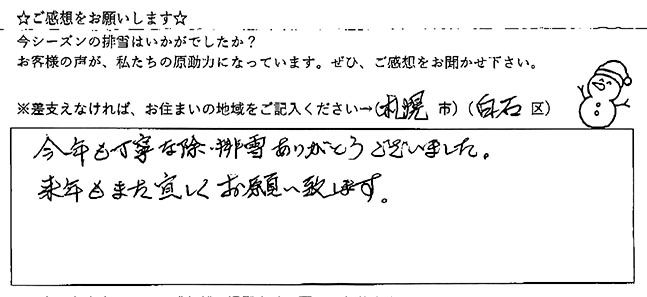 ☆ご感想をお願いします☆
今シーズンの排雪はいかがでしたか？
お客様の声が、私たちの原動力になっています。ぜひ、ご感想をお聞かせ下さい。
※差支えなければ、お住まいの地域をご記入ください→(札幌 市)(白石 区)
今年も丁寧な除・排雪ありがとうございました。
来年もまた宜しくお願い致します。